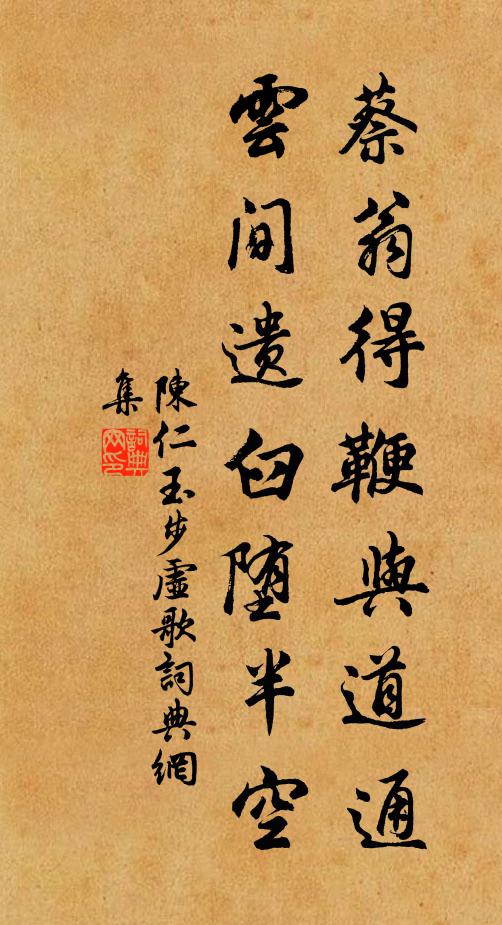 蔡翁得鞭與道通
雲間遺臼堕半空
陳仁玉步虛歌詞典網
集
詞典
网印